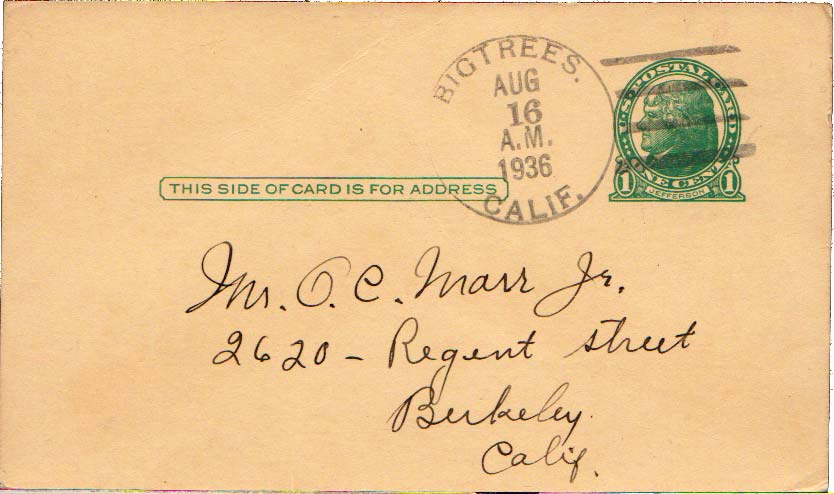 BIGTREES.
AUG
16
A.M.
1936
CALIF.
U.S. POSTAL CARD
ONE CENT
1 JEFFERSON 1
THIS SIDE OF CARD IS FOR ADDRESS
Mr. O. C. Marr Jr.
2620 - Regent street
Berkeley
Calif.